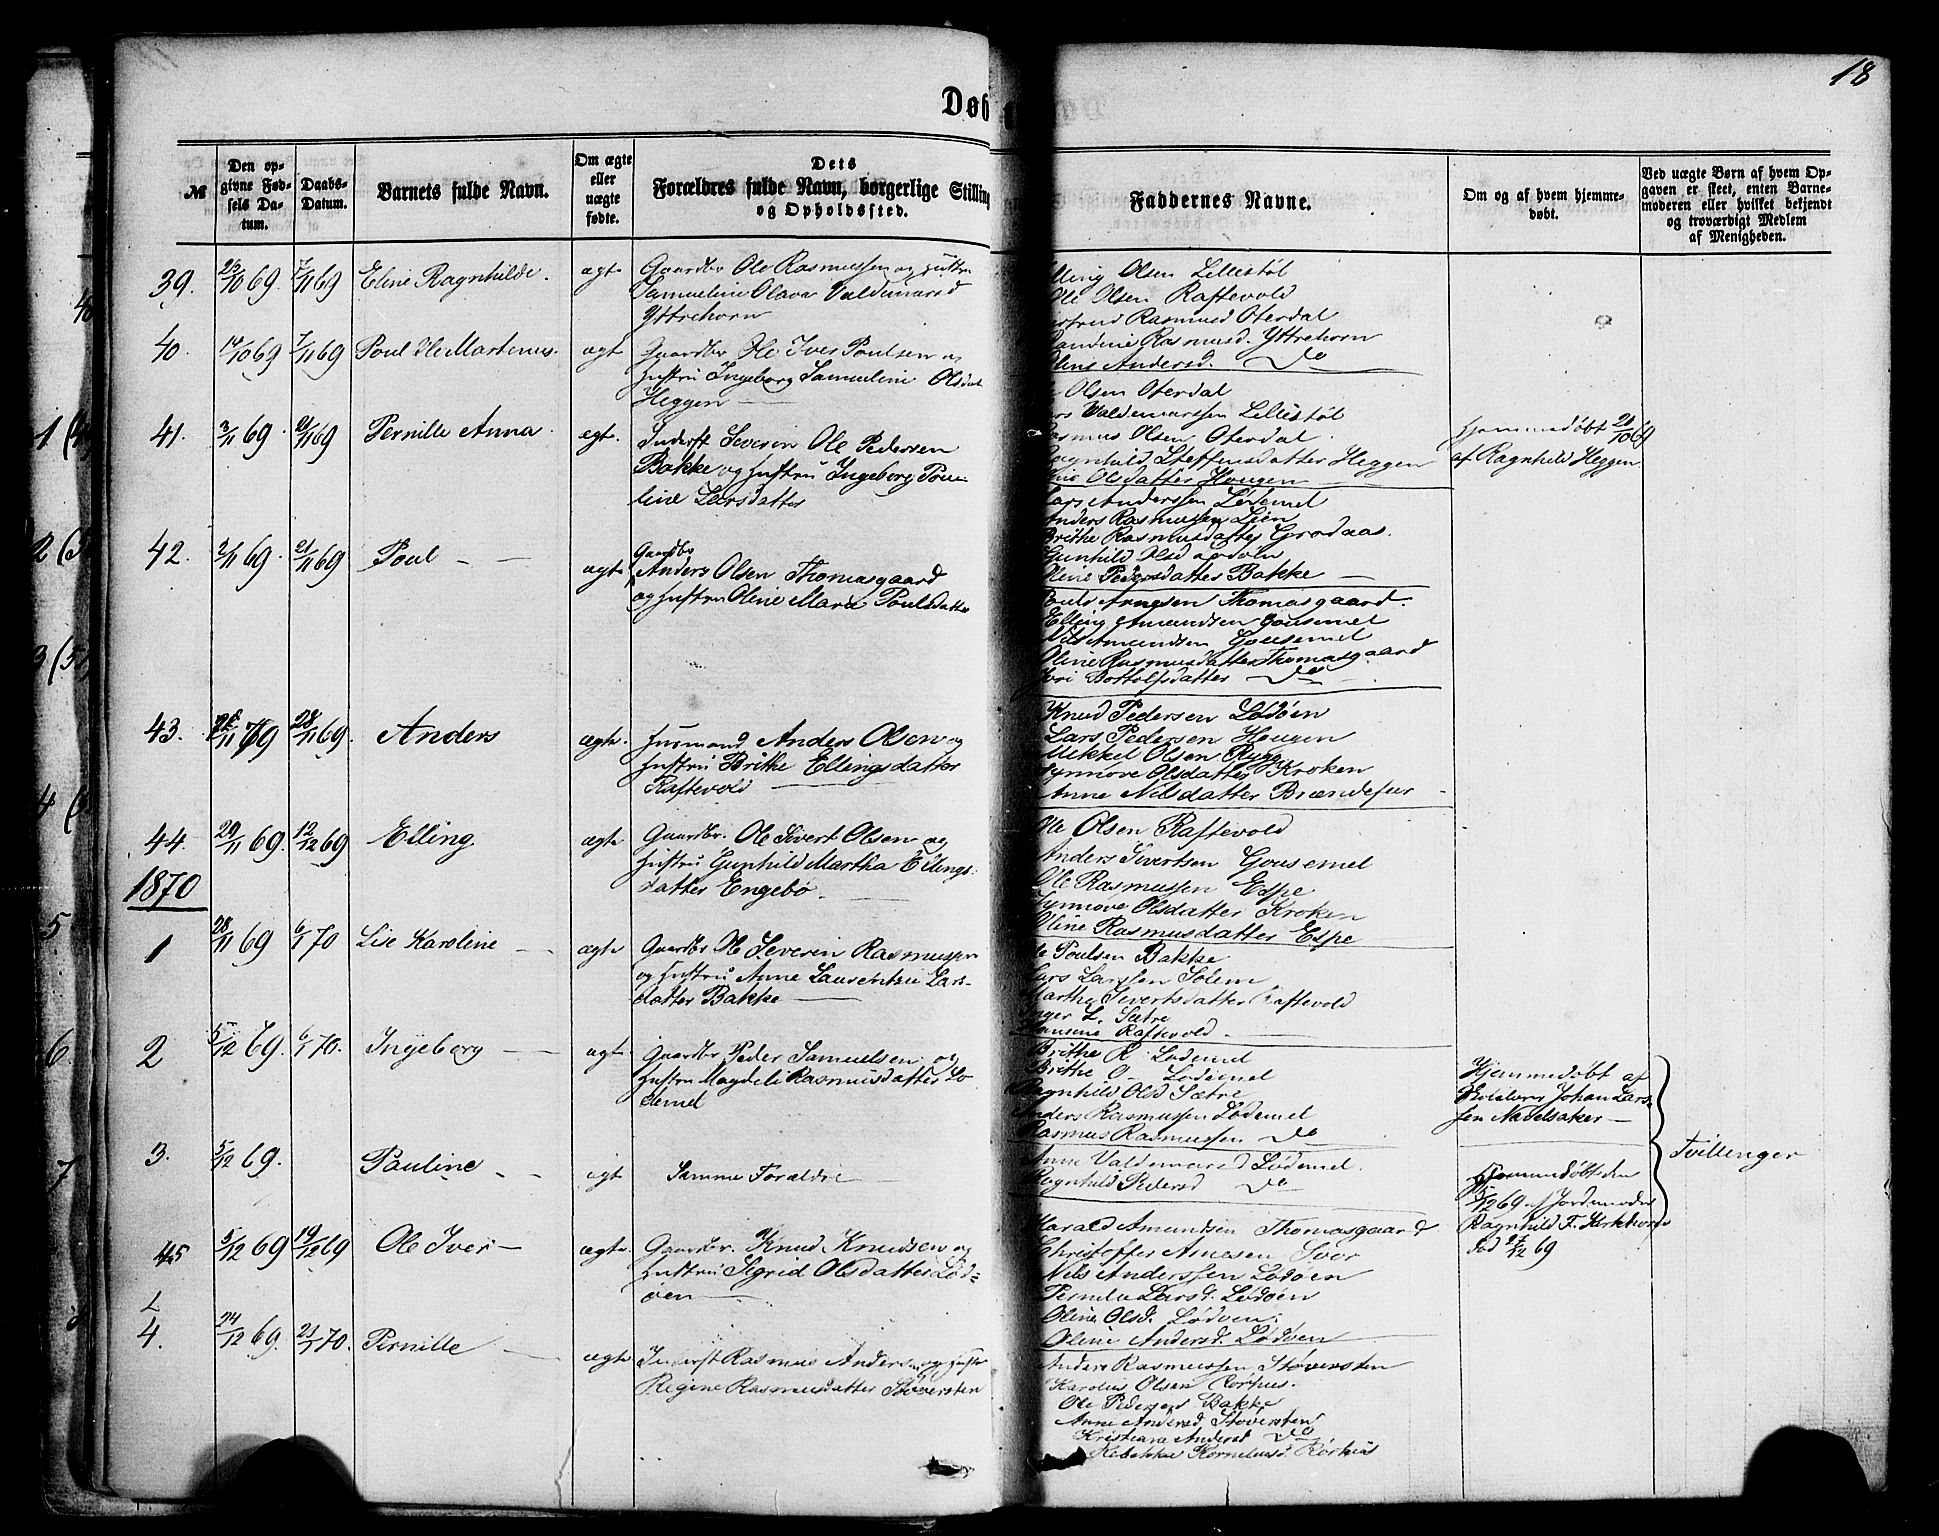 18
Døb
№
Den op-
givne Fød-
sels Da-
tum.
Daabs-
Datum.
Barnets fulde Navn.
Om ægte
eller
uægte
fødte.
Dets
Forældres fulde Navn, borgerlige Stilling
og Opholdssted.
Faddernes Navne.
Om og af hvem hjemme-
døbt.
Ved uægte Børn af hvem Op-
gaven er skeet, enten Barne-
moderen eller hvilket bekjendt
og troværdigt Medlem
af Menigheden.
39. 23/10 69. 7/11 69 Eline Ragnhilde. ægte
Gaardbr Ole Rasmussen og Hustru
Samueline Olava Valdemarsd
Yttrehorn
Elling Olsen Lillestøl
Ole Olsen Raftevold
Rasmusd Oterdal
Rasmusd. Yttrehorn
Oline Andersd. Do
40. 14/10 69 7/11 69 Poul Ole Martenus. ægt
Gaardbr Ole Iver Poulsen og
Hustru Ingeborg Samueline Olsdat
Heggen
Olsen Oterdal
Lars Valdemarssen Lillestøl
Rasmus Olsen Oterdal
Ragnhild Steffensdatter Heggen
Oline Olsdatter Hougen
Hjemmedøbt 20/10 69
af Ragnhild Heggen
41. 3/11 69. 21/11 69 Pernille Anna. egt.
Inderst Severin Ole Pedersen
Bakke og Hustru Ingeborg Pou-
line Larsdatter
Lars Anderssen Lødemel
Anders Rasmussen Lien
Brithe Rasmusdatter Grodaas.
Gunhild Olsd Lødøen
Oline Pedersdatter Bakke
42. 2/11 69. 21/11 69 Poul ægte
Gaardbr
Anders Olsen Thomasgaard
og Hustru Oline Maria Poulsdatter
Pouls Arnesen Thomasgaard.
Elling Amundsen Gousemel
Nils Amundsen Gousemel
Oline Rasmusdatter Thomasgaard
Bottolfsdatter Do
43. /11 69 28/11 69. Anders ægte.
Husmand Anders Olsen og
Hustru Brithe Ellingsdatter
Raftevold
Knud Pedersen Lødøen
Lars Pedersen Hougen
Mikkel Olsen Rygg
Synnøve Olsdatter Kroken
Anne Nilsdatter
44. 29/11 69. 12/12 69 Elling. ægte
Gaardbr. Ole Sivert Olsen og
Hustru Gunhild Martha Ellings-
datter Engebø.
Ole Olsen Raftevold
Anders Sivertsen Gousemel
Ole Rasmussen Espe
Synnøve Olsdatter Kroken
Oline Rasmusdatter Espe
1870
1 28/11 69 6/1 70 Lise Karoline ægte
Gaardbr Ole Severin Rasmussen
og Hustru Anne Laurentzie Lars-
datter Bakke
Ole Poulsen Bakke
Lars Larssen Solem
Martha Sivertsdatter Raftevold
Inger L. Sætre
Hansine Raftevold.
2 5/12 69. 6/1 70. Ingeborg ægte
Gaardbr Peder Samuelsen og
Hustru Magdeli Rasmusdatter Lø
demel
Brithe R Lødemel
Brithe O Lødemel
Ragnhild Olsd Sætre
Anders Rasmussen Lødemel
Rasmus Rasmussen Do
Hjemmedøbt af
Skolelærer Johan Lars-
sen Navelsaker
3. 5/12 69. Pauline egt
Samme Forældre
Anne Valdemarsd Lødemel.
Ragnhild Pedersd Do
Hjemmedøbt den
5/12 69 af Jordemoder
Ragnhild F. Kirkhorn
død 27/12 69
Tvillinger
45 5/12 69 19/12 69 Ole Iver ægte.
Gaardbr. Knud Knudsen og
Hustru Sigrid Olsdatter Lød-
øen
Harald Amundsen Thomasgaard
Christoffer Arnesen Svor
Nils Anderssen Lødøen
Pernille Larsd. Lødøen
Oline Olsd. Lødøen
Oline Andersd. Lødøen
4. 24/12 69. 21/1 70. Pernille ægte
Inderst Rasmus Anders og Hustr
Regine Rasmusdatter Støversten
Anders Rasmussen Støversten
Karolus Olsen Rørhus.
Ole Pedersen Bakke
Anne Andersd. Støversten
Kristiane Andersd Do
Rebekka Kornelusd. Rørhus